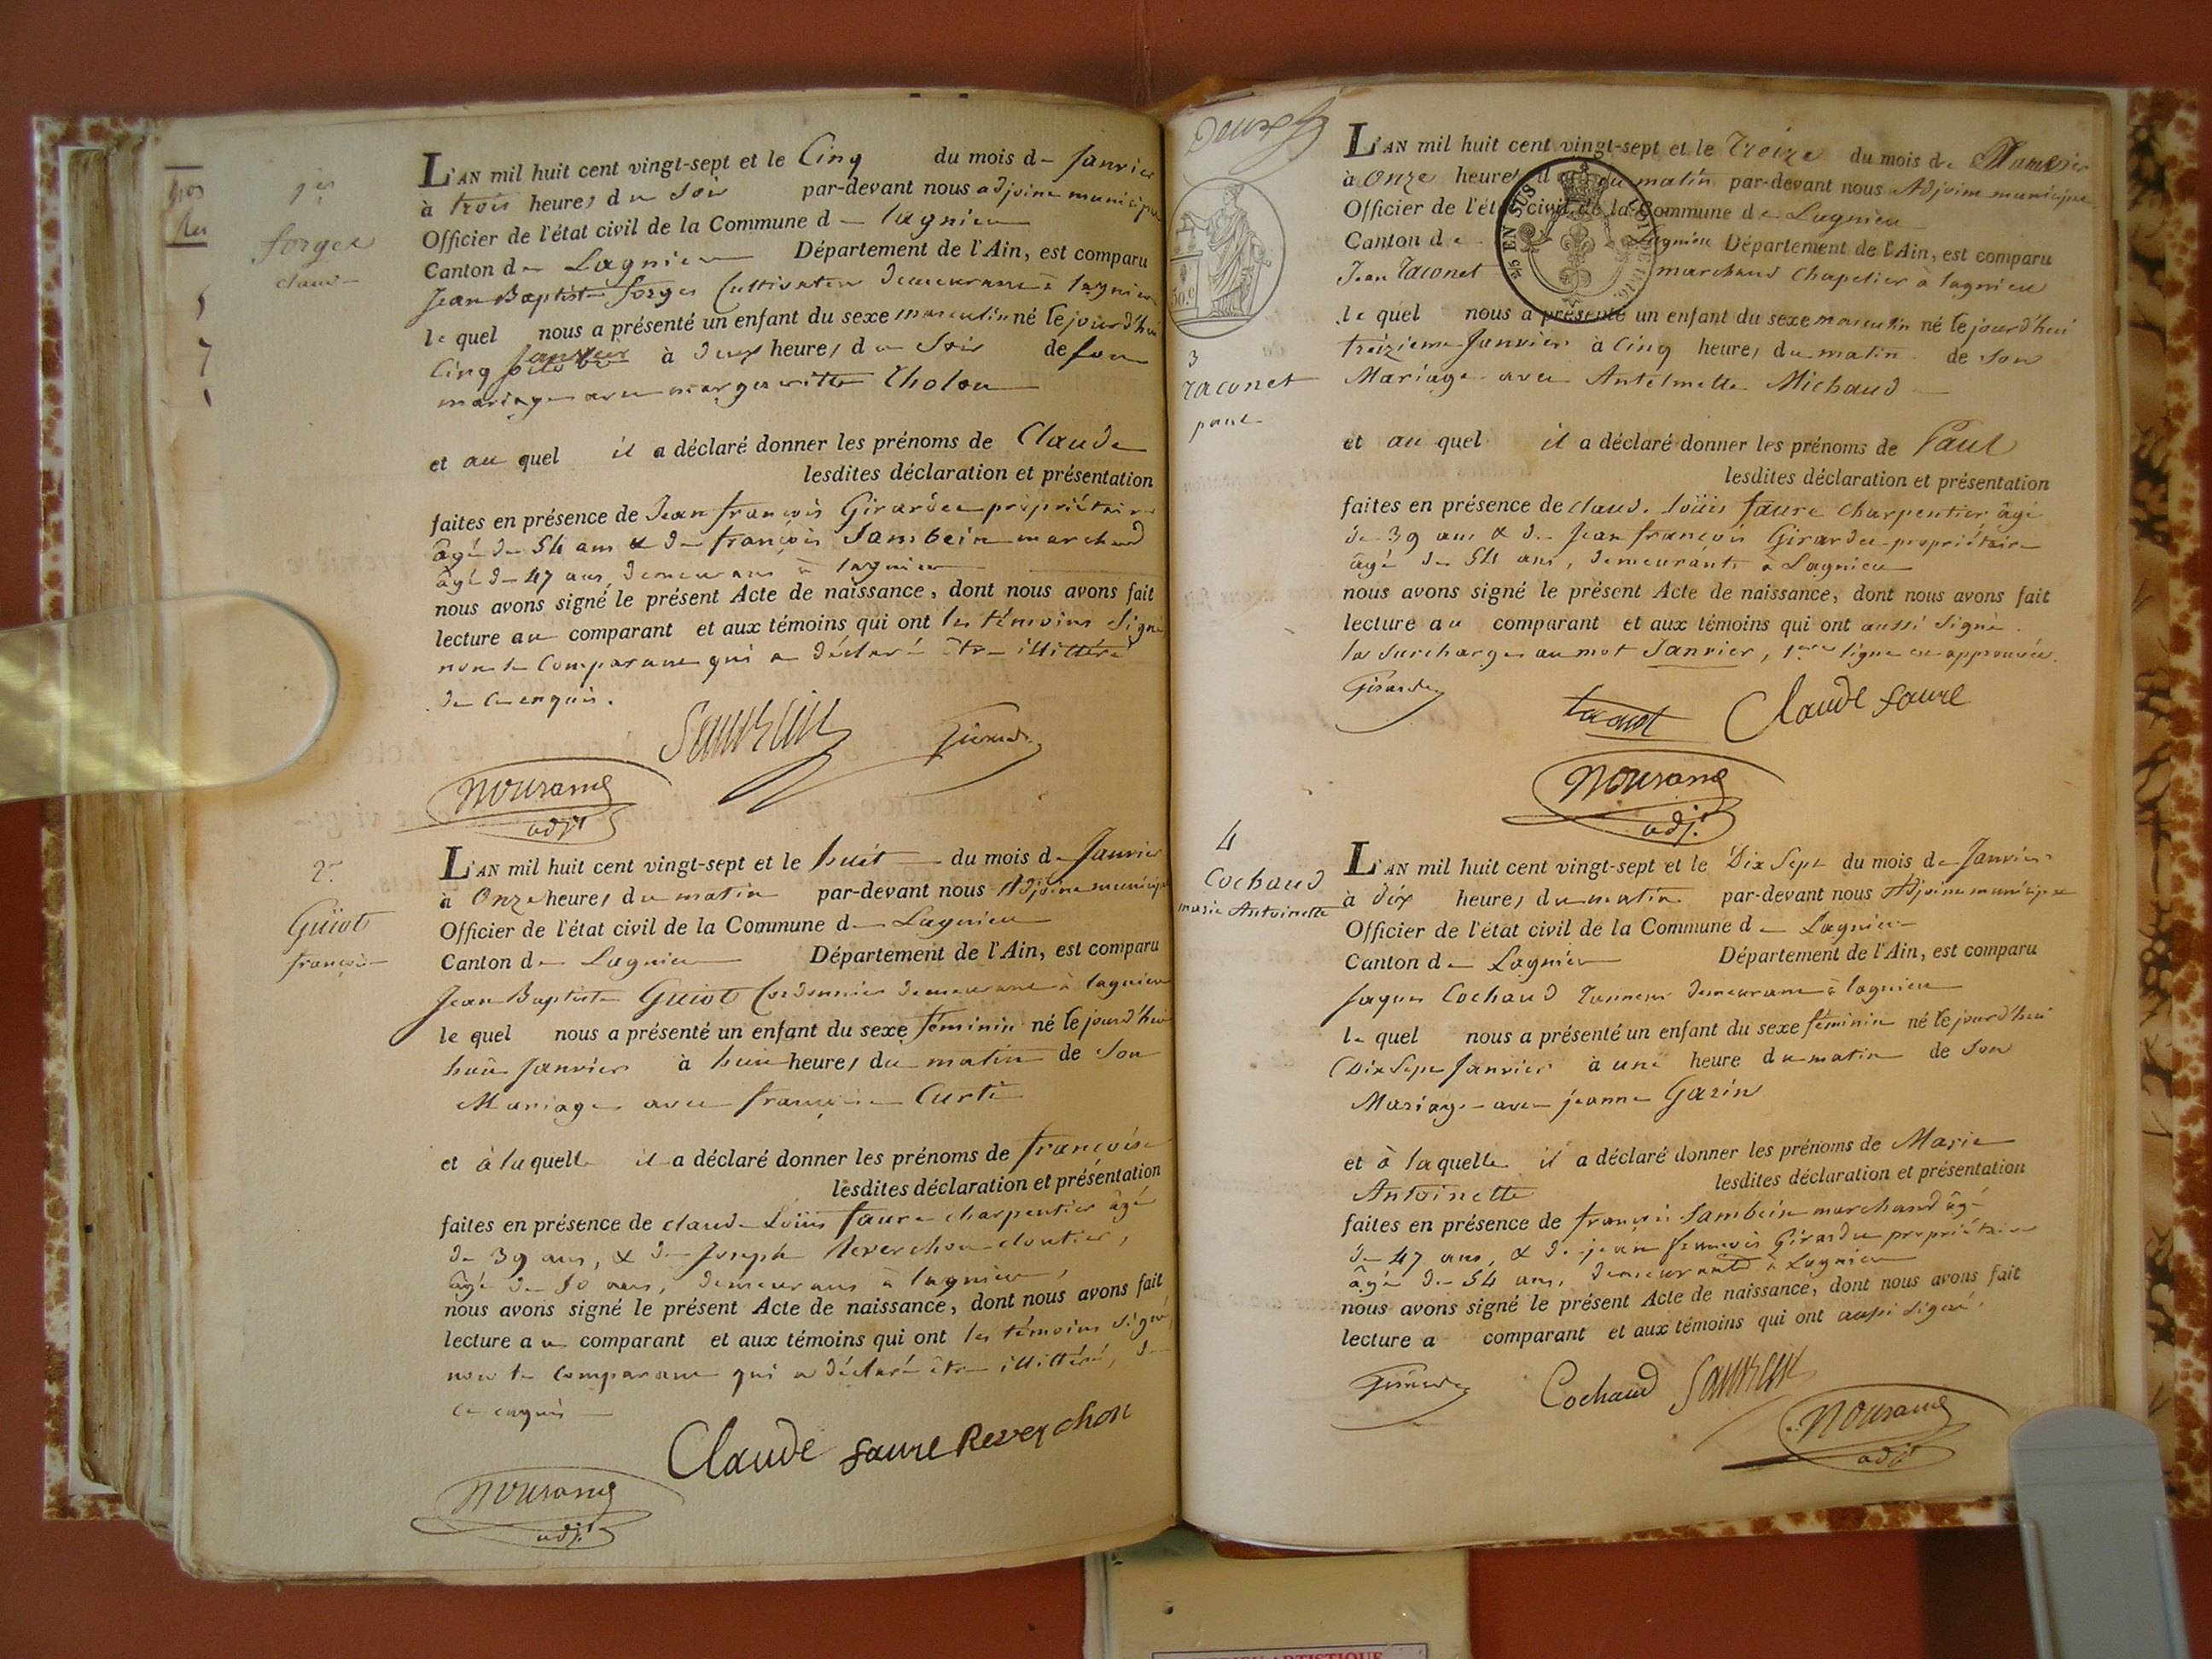 1er
forges
claude
L'AN mil huit cent vingt-sept et le Cinq du mois de Janvier
à trois heures du soir par-devant nous adjoint municipal
Officier de l'état civil de la Commune de lagnieu
Canton de Lagnieu Département de l'Ain, est comparu
Jean Baptiste forges Cultivateur demeurant à lagnieu
le quel nous a présenté un enfant du sexe masculin né cejourd'hui
Cinq Janvier à deux heures du soir de son
mariage avec margueritte Cholon
et au quel il a déclaré donner les prénoms de Claude
lesdites déclaration et présentation
faites en présence de Jean françois Girardee propriétaire
âgé de 54 ans & de françois Sambein marchand
âgé de 47 ans, demeurans à lagnieu
nous avons signé le présent Acte de naissance, dont nous avons fait
lecture au comparant et aux témoins qui ont les témoins signé
non le comparant qui a déclaré être illitéré
de ce enquis.
Sambein Girardee
Mourand
adjt
2e
Guiot
françoise
L'AN mil huit cent vingt-sept et le huit du mois de Janvier
à Onze heures du matin par-devant nous Adjoint municipal
Officier de l'état civil de la Commune de Lagnieu
Canton de Lagnieu Département de l'Ain, est comparu
Jean Baptiste Guiot Cordonnier demeurant à lagnieu
le quel nous a présenté un enfant du sexe féminin né cejourd'hui
huit Janvier à huit heures du matin de son
Mariage avec françoise Curti
et à laquelle il a déclaré donner les prénoms de françoise
lesdites déclaration et présentation
faites en présence de claude Loüis faure charpentier âgé
de 39 ans, & de Joseph Reverchon cloutier,
âgé de 50 ans, demeurans à lagnieu,
nous avons signé le présent Acte de naissance, dont nous avons fait
lecture au comparant et aux témoins qui ont les témoins signé,
non le comparant qui a déclaré être illitéré, de
ce enquis
Claude faure Reverchon
Mourand
adjt
L'AN mil huit cent vingt-sept et le Treize du mois de Janvier
à Onze heures du matin par-devant nous Adjoint municipal
Officier de l'état civil de la Commune de Lagnieu
Canton de Lagnieu Département de l'Ain, est comparu
Jean Taconet marchand chapelier à lagnieu
le quel nous a présenté un enfant du sexe masculin né cejourd'hui
treizieme Janvier à cinq heures du matin de son
Mariage avec Antelmette Michaud
3
Taconet
paul
et au quel il a déclaré donner les prénoms de Paul
lesdites déclaration et présentation
faites en présence de claude loüis faure charpentier âgé
de 39 ans & de Jean françois Girardee propriétaire
âgé de 54 ans, demeurants à Lagnieu
nous avons signé le présent Acte de naissance, dont nous avons fait
lecture au comparant et aux témoins qui ont aussi signé.
la surcharge au mot Janvier, 1ere ligne est approuvée.
Girardee taconet Claude faure
Mourand
adjt
4
Cochaud
marie Antoinette
L'AN mil huit cent vingt-sept et le Dix Sept du mois de Janvier
à dix heures du matin par-devant nous Adjoint municipal
Officier de l'état civil de la Commune de Lagnieu
Canton de Lagnieu Département de l'Ain, est comparu
Jaques Cochaud Tanneur demeurant à lagnieu
le quel nous a présenté un enfant du sexe féminin né cejourd'hui
Dix Sept Janvier à une heure du matin de son
Mariage avec jeanne Garin
et à laquelle il a déclaré donner les prénoms de Marie
Antoinette lesdites déclaration et présentation
faites en présence de françois Sambein marchand âgé
de 47 ans, & de jean françois Girardee propriétaire
âgé de 54 ans, demeurants à Lagnieu
nous avons signé le présent Acte de naissance, dont nous avons fait
lecture a comparant et aux témoins qui ont aussi signé.
Girardee Cochaud Sambein
Mourand
adjt